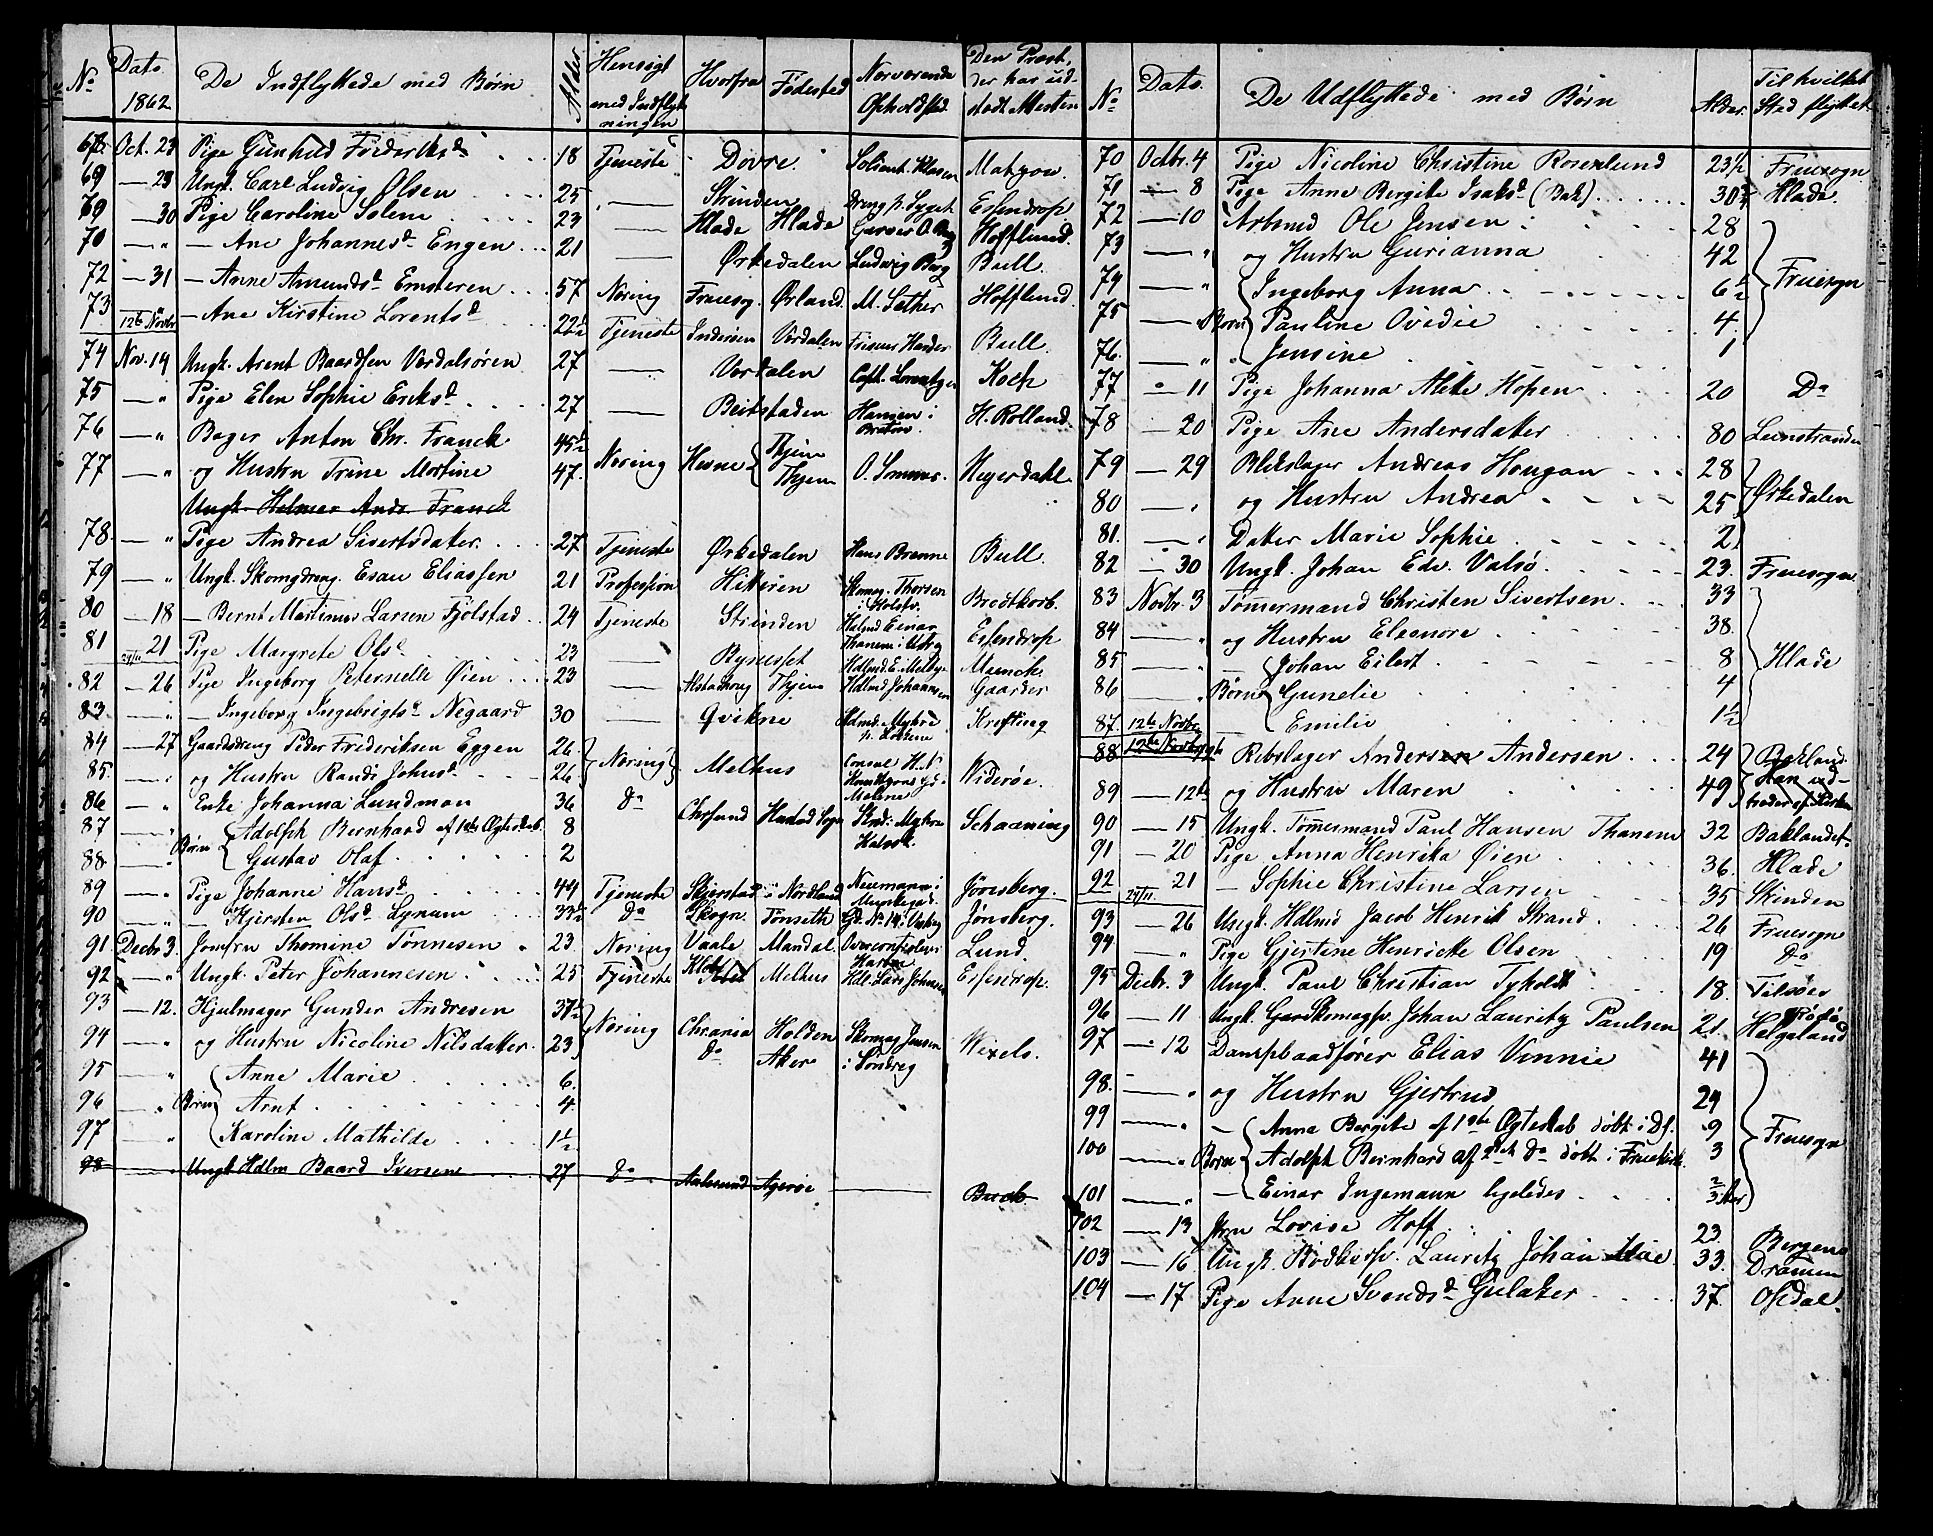 No | Dato 1862 | De Indflyttede med Børn | Alder | Hensigt med Indflytningen | Hvorfra | Fødested | Nærværende Opholdsted | Den Præst, der har udstedt Attesten
68 | Oct. 23 | Pige Gunhild | 18 | Tjeneste | Dovre | Matzow.
69 | — 23 | Ungk. Carl Ludvig Olsen | 25 | — | Strinden | Essendrop
69 | — 30 | Pige Caroline Solem | 23 | — | Hlade | Hlade | Garver O. Berg | Hofflund.
70 | — " | — Ane Johannesd. Engen | 21 | — | Ørkedalen | Ludvig Berg | Bull.
72 | — 31 | — Anne Amundsd. Emsteren | 57 | Næring | Fruesog. | Ørland. | M. Sæther | Hofflund.
73 | 12te Novbr | — Ane Kirstine Lorentsd. | 22½ | Tjeneste | Inderøen | Værdalen | Friseur Harder | Bull.
74 | Nov. 14 | Ungk. Arent Baardsen Værdalsøren | 27 | — | Værdalen | Capt. Lorentzen | Koch
75 | — " | Pige Elen Sophie Eriksd. | 27 | — | Beitstaden | Hansen i Bratøre | H. Rolland.
76 | — " | Bager Anton Chr. Franck | 45½ | Næring | Hevne | Thjem
77 | — " | og Hustru Trine Martine | 47. | Thjem | O. | Hegerdahl.
Ungk. Helmer Andr. Franck
78. | — " | Pige Andrea Sivertsdatter. | 27 | Tjeneste | Ørkedalen | Hans Brænne | Bull.
79 | — " | Ungk. Skomgdreng. Esau Eliassen | 21 | Profession | Hitteren | Skomag. Thorsen i Holstv. | Bredtkorb.
80 | — 18 | — Bernt Martinus Larsen Fjølstad | 24 | Tjeneste | Strinden | Hdlmd Einar Thanem i | Essendrop
81 | 21 | Pige Margrete Olsd. | 23 | — | Bynesset | Hdlmd. E. Melbye | Munch.
82 | — 26 | Pige Ingeborg Peternelle Øien | 23 | — | Alstahoug | Thjem | Hdlmd Johannsen | Gaarder
83 | — " | — Ingeborg Ingebrigtsd. Negaard | 30 | — | Qvikne | Hdmd. Myhre | Krefting
84 | — 27 | Gaardsdreng Peder Frederiksen Eggen | 26. | Næring | Melhus | Consul | Widerøe.
85. | — " | og Hustru Randi Johnsd. | 26
86 | — " | Enke Johanna Lundman | 36 | do | Chrsund | Hustad Sogn | Snd. Myhre | Schanning
87 | — " | Børn Adolph Bernhard af 1ste Ægteskab. | 8
88. | — " | Gustav Olaf | 2
89 | — " | Pige Johanne Hansd. | 44 | Tjeneste | Skjerstad i Nordland | Neumann i | Jønsberg.
90 | — " | — Kjersten Olsd. Lynum | 33½ | do | Skogn. | Tønseth | Jønsberg.
91 | Decbr 3. | Jomfru Thomine Tønnesen | 23. | Næring | Vaale | Mandal. | Lund.
92 | — " | Ungk. Peter Johannesen | 25 | Tjeneste | Melhus | Hdl. Lars Johnsen | Essendrop.
93 | — 12. | Hjulmager Gunder Andresen | 37½ | Næring | Chrania | Holden | Skomag. Jensen | Wexels.
94 | — " | og Hustru Nicoline Nilsdatter. | 23 | do | Aker | i Søndreg
95 | — " | Anne Marie | 6.
96 | — " | Børn Arnt | 4.
97 | — " | Karoline Mathilde | 1½
98 | — " | Ungk. Hdlm Baard Iversen | 27 | do | Aalesund | Agerøe | — | Buch
No | Dato. | De Udflyttede med Børn | Alder | Til hvilket Sted flyttet
70 | Octbr. 4 | Pige Nicoline Christine Rosenlund | 23½ | Fruesogn
71 | — 8 | Pige Anne Bergite Isaksd. (Bak) | 30¾ | Hlade.
72 | — 10 | Arbmd Ole Jensen | 28 | Fruesogn
73 | — " | og Hustru Gurianna | 42
74 | — " | Ingeborg Anna | 6½
75 | — | Børn Pauline Ovedie | 4
76. | — " | Jensine | 1
77 | " 11 | Pige Johanna Mete Hopen | 20 | Do
78 | — 20 | Pige Ane Andersdatter | 80 | Leinstranden
79 | — 29 | Blikslager Andreas Hougan | 28 | Ørkedalen
80 | — " | og Hustru Andrea | 25
81. | — " | Datter Marie Sophie | 2
82 | — 30 | Ungk. Johan Edv. Valsø. | 23. | Fruesogn
83 | Novbr. 3 | Tømmermand Christen Sivertsen | 33 | Hlade
84 | — " | og Hustru Eleonore | 38.
85 | — " | Johan Eilert | 8
86 | — " | Børn Gunelie | 4
87 | 12te Novbr. | Emilie | 1½
88 | 12te Novbr. | Rebslager Andersen Andersen | 24 | Bakland.
89 | — 12te | og Hustru Maren | 49 | Han udtræder af Kirken
90 | — 15 | Ungk. Tømmermand Paul Hansen Thanem | 32 | Baklandet
91 | — 20 | Pige Anna Henrika Øien | 36. | Hlade
92 | 21 | — Sophie Christine Larsen | 35 | Strinden
93 | — 26 | Ungk. Hdlmd Jacob Henrik Strand. | 26 | Fruesogn
94 | — " | Pige Gjertine Henriette Olsen | 19 | do
95 | Decbr. 3 | Ungk. Paul Christian Tyholdt | 18.
96 | — 11 | Ungk. Skomagsv. Johan Lauritz Paulsen | 21. | Helgeland
97 | — 12 | Dampbaadfører Elias Vinnie | 41 | Fruesogn
98. | — " | og Hustru Gjertrud | 29
99 | — " | Anna Bergite af 1ste Ægteskab døbt i Df. | 9
100 | — " | Børn Adolph Bernhard af 2det do døbt i Fruekirk. | 3
101 | — " | Einar Ingemann ligeledes
102 | — 13 | Jfru Lovise Hoff | 23. | Bergen
103 | — 16 | Ungk. Bødkersv. Lauritz Johan | 33. | Dramen
104 | — 17 | Pige Anne Svendsd. Gulaker | 37. | Opdal.